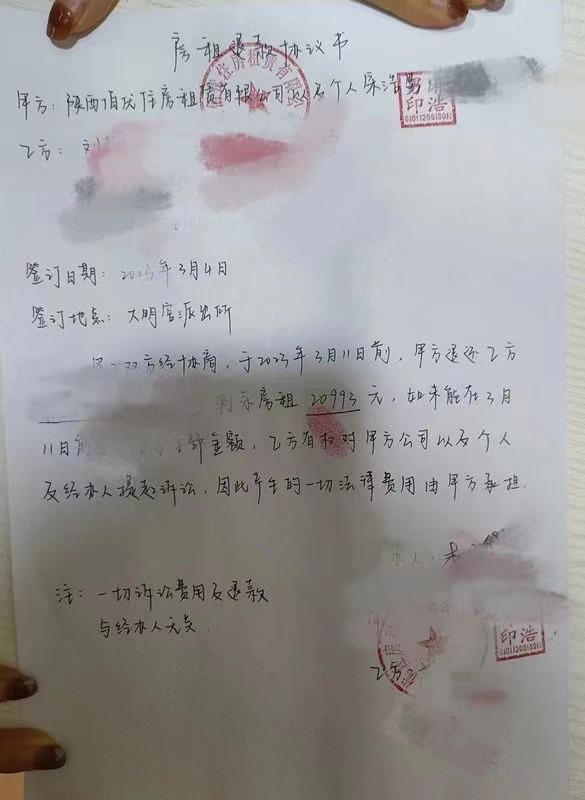 房租退款协议书
甲方：陕西佰优住房租赁有限公司以及个人宋浩男
印浩
6101120518011
乙方：刘
签订日期：2023年3月4日
签订地点：大明宫派出所
甲乙双方经协商，于2023年3月11日前，甲方退还乙方
剩余房租 20993 元，如未能在3月
11日前 金额，乙方有权对甲方公司以及个人
及经办人提起诉讼，因此产生的一切法律费用由甲方承担.
办人：
注：一切诉讼费用及退款
与经办人无关.
印浩
6101120518011
乙方